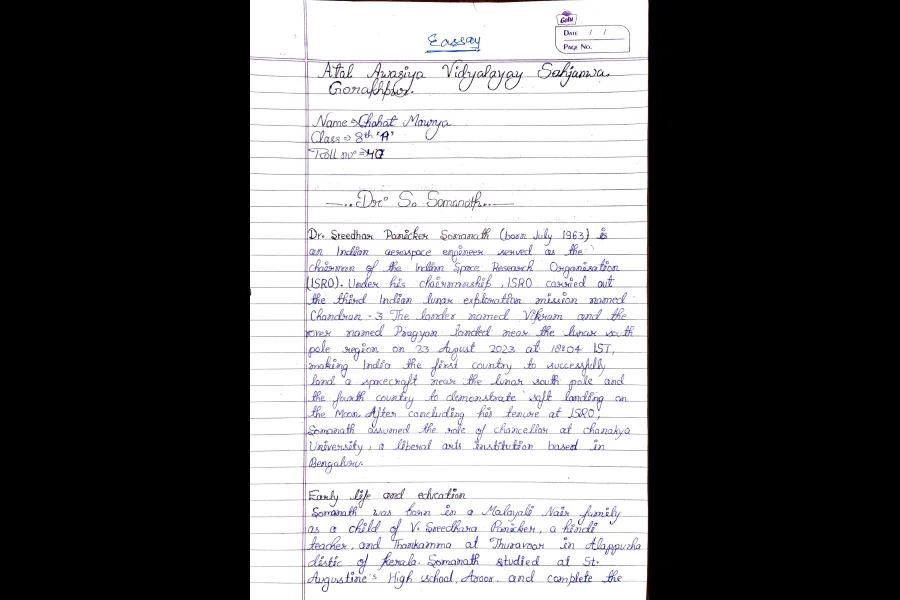 Goln
DATE / /
PAGE NO.
Eassay
Atal Awasiya Vidyalayay Sahjanwa
Gorakhpur.
Name ⇒ Chahat Mawrya
Class ⇒ 8th 'A'
Roll no ⇒ 40
Dr. S. Somanath
Dr. Sreedhar Panicker Somanath (born July 1963) is
an Indian aerospace engineer served as the
chairman of the Indian Space Research Organisation
(ISRO). Under his chairmanship, ISRO carried out
the third Indian lunar exploration mission named
Chandran-3 The lander named Vikram and the
rover named Pragyan landed near the lunar south
pole region on 23 August 2023 at 18:04 IST,
making India the first country to successfully
land a spacecraft near the lunar south pole and
the fourth country to demonstrate soft landing on
the Moon. After concluding his tenure at ISRO,
Somanath assumed the role of chancellor at chanakya
University, a liberal arts institution based in
Bengaluru.
Early life and education
Somanath was born in a Malayali Nair family
as a child of V. Sreedhara Panicker, a hindi
teacher, and Thankamma at Thuravoor in Alappuzha
distic of kerala. Somanath studied at St.
Augustine's High school, Aroor. and complete the